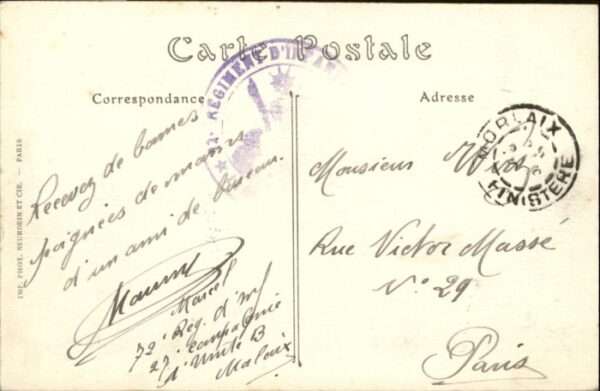 Carte Postale
RÉGIMENT D'INFAN
Correspondance
Adresse
MORLAIX
FINISTÈRE
Recevez de bonnes
poignées de mains
d'un ami de
Marcel
72e Rég. d'Inf
27e Compagnie
d'Unité B
Morlaix
Monsieur
Rue Victor Massé
N° 29
Paris
IMP. PHOT. NEURDEIN ET CIE. — PARIS